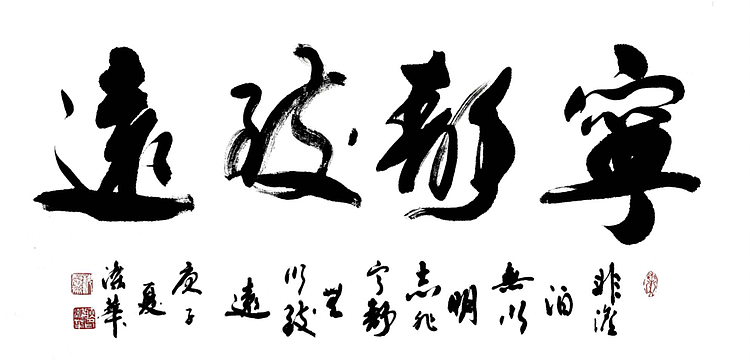 寧靜致遠
非澹泊無以明志非寧靜無以致遠
庚子夏